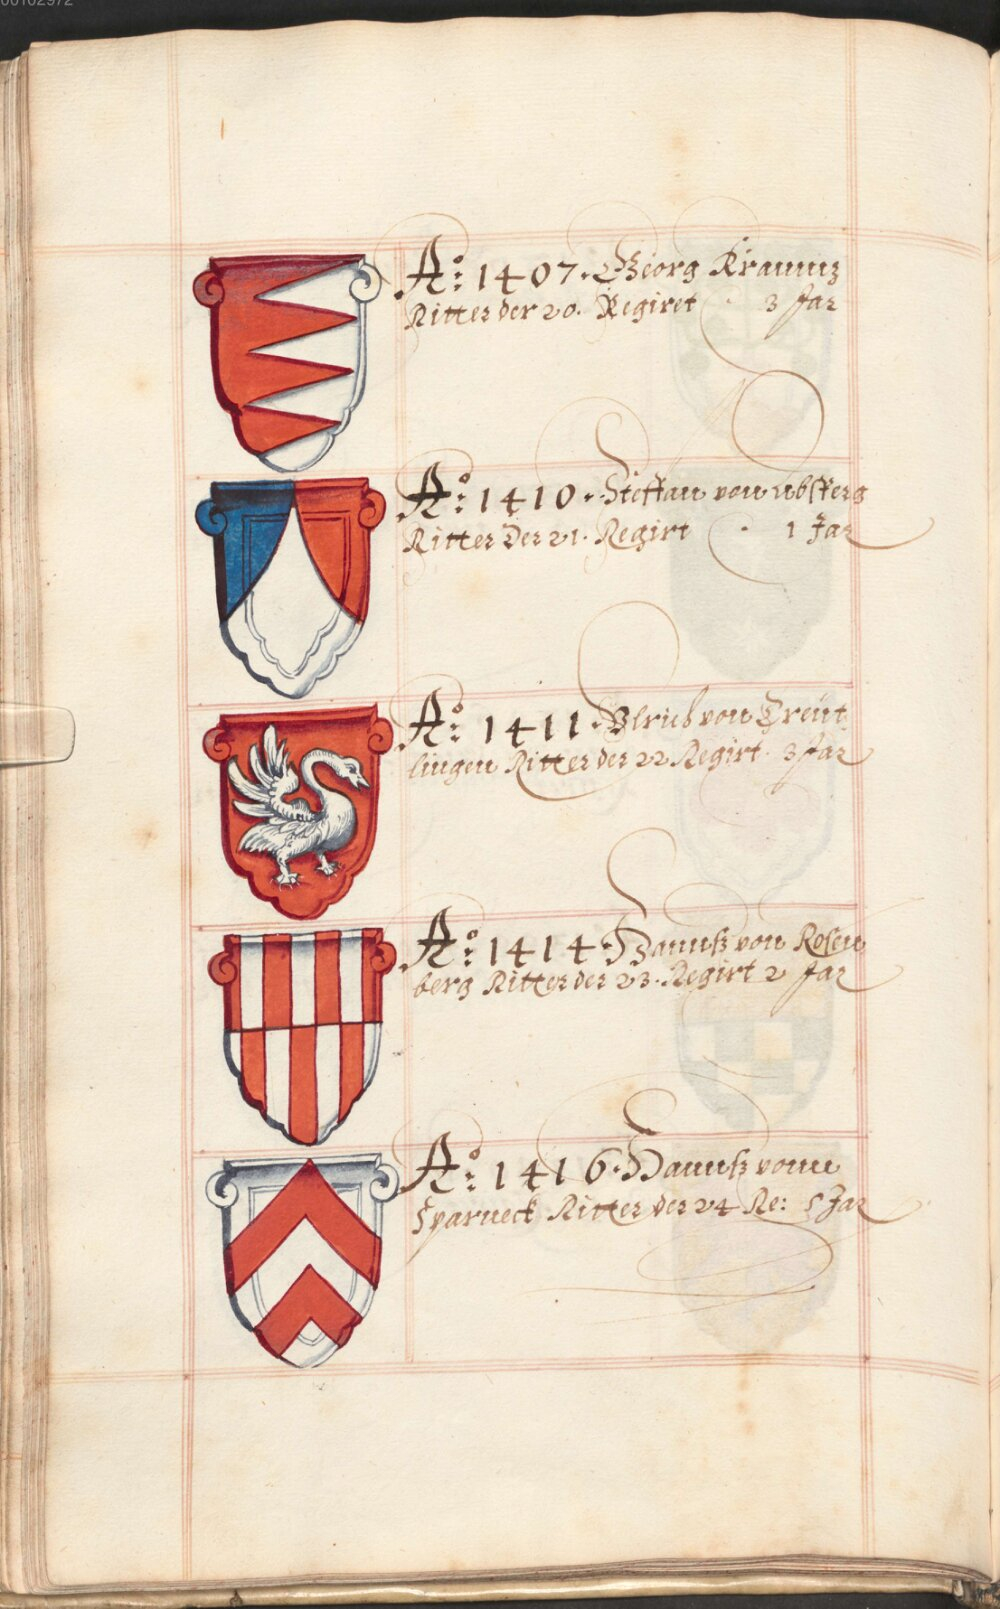 00102972
Aͦ: 1407. Georg Kraunz
Ritter der 20. Regiret · 3 Jar
Aͦ: 1410. Steffan von Absperg
Ritter der 21. Regirt · 1 Jar
Aͦ: 1411. Vlrich von Treüt
lingen Ritter der 22 Regirt. 3 Jar
Aͦ: 1414. Hannß von Rosen
berg Ritter der 23. Regirt 2 Jar
Aͦ: 1416. Hannß vonn
Sparneck Ritter der 24 Re: 5 Jar